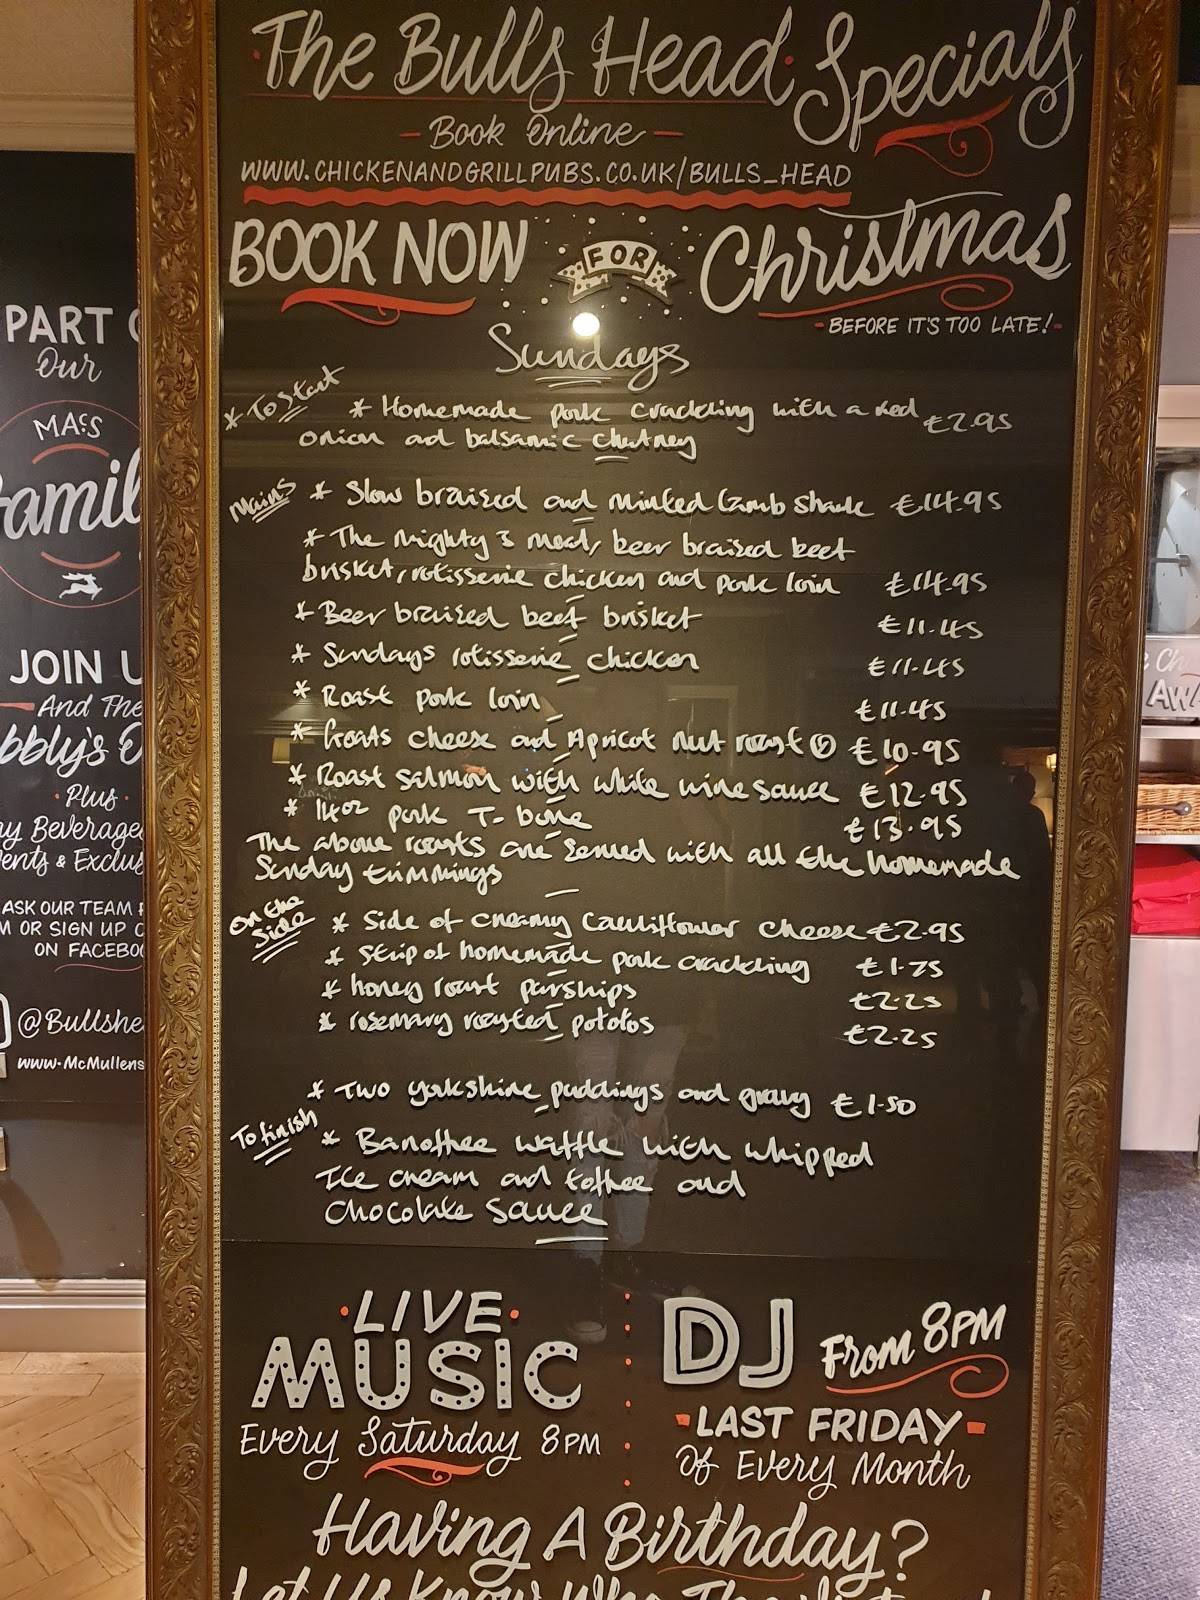 The Bulls Head Specials
- Book Online -
WWW.CHICKENANDGRILLPUBS.CO.UK/BULLS_HEAD
BOOK NOW FOR Christmas
- BEFORE IT'S TOO LATE! -
Sundays
* To Start * Homemade pork crackling with a red £2.95
onion and balsamic chutney
Mains * Slow braised and minted Lamb Shank £14.95
* The mighty 3 meat, beer braised beef
brisket, rotisserie chicken and pork loin £14.95
* Beer braised beef brisket £11.45
* Sundays rotisserie chicken £11.45
* Roast pork loin £11.45
* Goats cheese and Apricot nut roast Ⓥ £10.95
* Roast salmon with white wine sauce £12.95
* 14oz pork T-bone £13.95
The above roasts are served with all the homemade
Sunday trimmings
On the Side * Side of creamy Cauliflower cheese £2.95
* Strip of homemade pork crackling £1.75
* honey roast parships £2.25
* rosemary roasted pototos £2.25
* Two yorkshire puddings and gravy £1.50
To finish * Banoffee waffle with whipped
Ice cream and toffee and
chocolate sauce
LIVE
MUSIC
Every Saturday 8PM
DJ From 8PM
LAST FRIDAY
Of Every Month
Having A Birthday?
Let Us Know
PART
Our
MACS
Famil
JOIN U
And The
bbly's
Plus
y Beverage
ents & Exclus
ASK OUR TEAM
M OR SIGN UP
ON FACEBO
@Bullshe
WWW.McMullens
Ch
AW